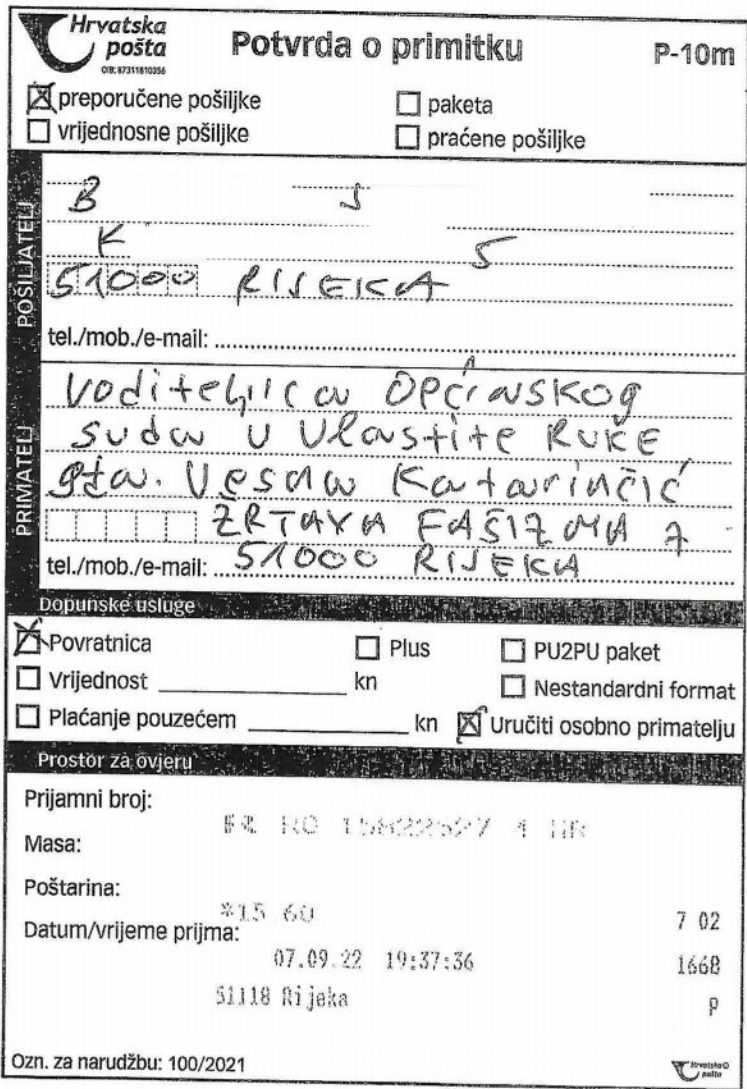 Hrvatska
pošta
OIB: 87311810356
Potvrda o primitku
P-10m
preporučene pošiljke
paketa
vrijednosne pošiljke
praćene pošiljke
POŠILJATELJ
B J
K S
51000 RIJEKA
tel./mob./e-mail:
PRIMATELJ
Voditeljica Općinskog
suda U Vlastite RUKE
gđa. Vesna Katarinčić
ŽRTAVA FAŠIZMA 7
tel./mob./e-mail: 51000 RIJEKA
Dopunske usluge
Povratnica
Plus
PU2PU paket
Vrijednost kn
Nestandardni format
Plaćanje pouzećem kn
Uručiti osobno primatelju
Prostor za ovjeru
Prijamni broj:
RO 15822527 4 HR
Masa:
Poštarina:
*15.60
7 02
Datum/vrijeme prijma:
07.09.22 19:37:36
1668
51118 Rijeka
P
Ozn. za narudžbu: 100/2021
Hrvatska
pošta